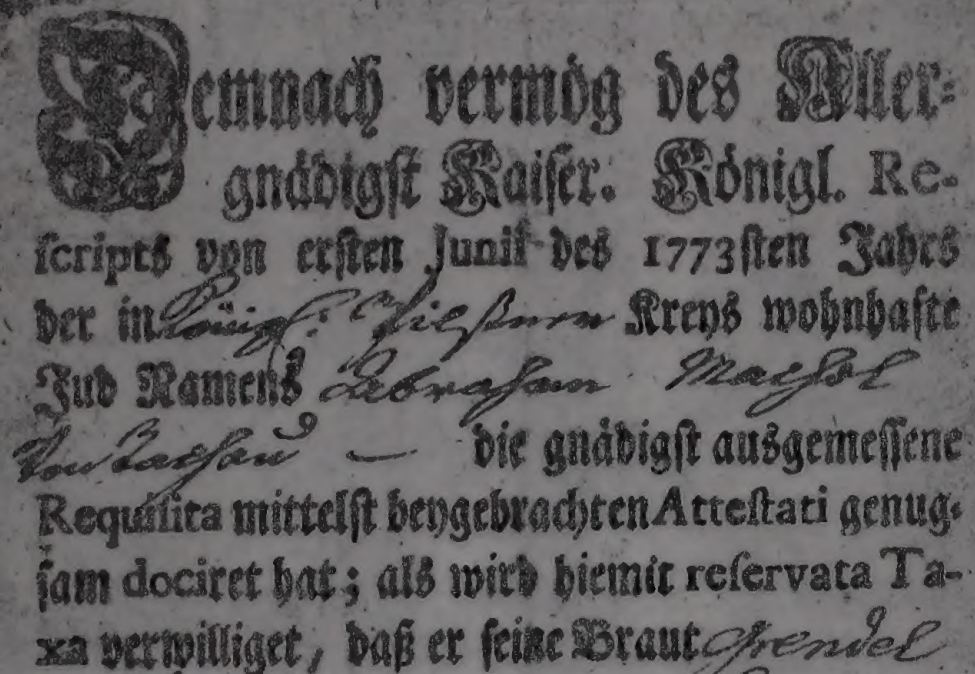 Demnach vermög des Aller-
gnädigst Kaiser. Königl. Re-
scripts von ersten Junii des 1773sten Jahrs
der in Königl: Pilßnern Kreys wohnhafte
Jud Namens Abraham
die gnädigst ausgemessene
Requisita mittelst beygebrachten Attestati genug-
sam dociret hat; als wird hiemit reservata Ta-
xa verwilliget, daß er seine Braut Grendel